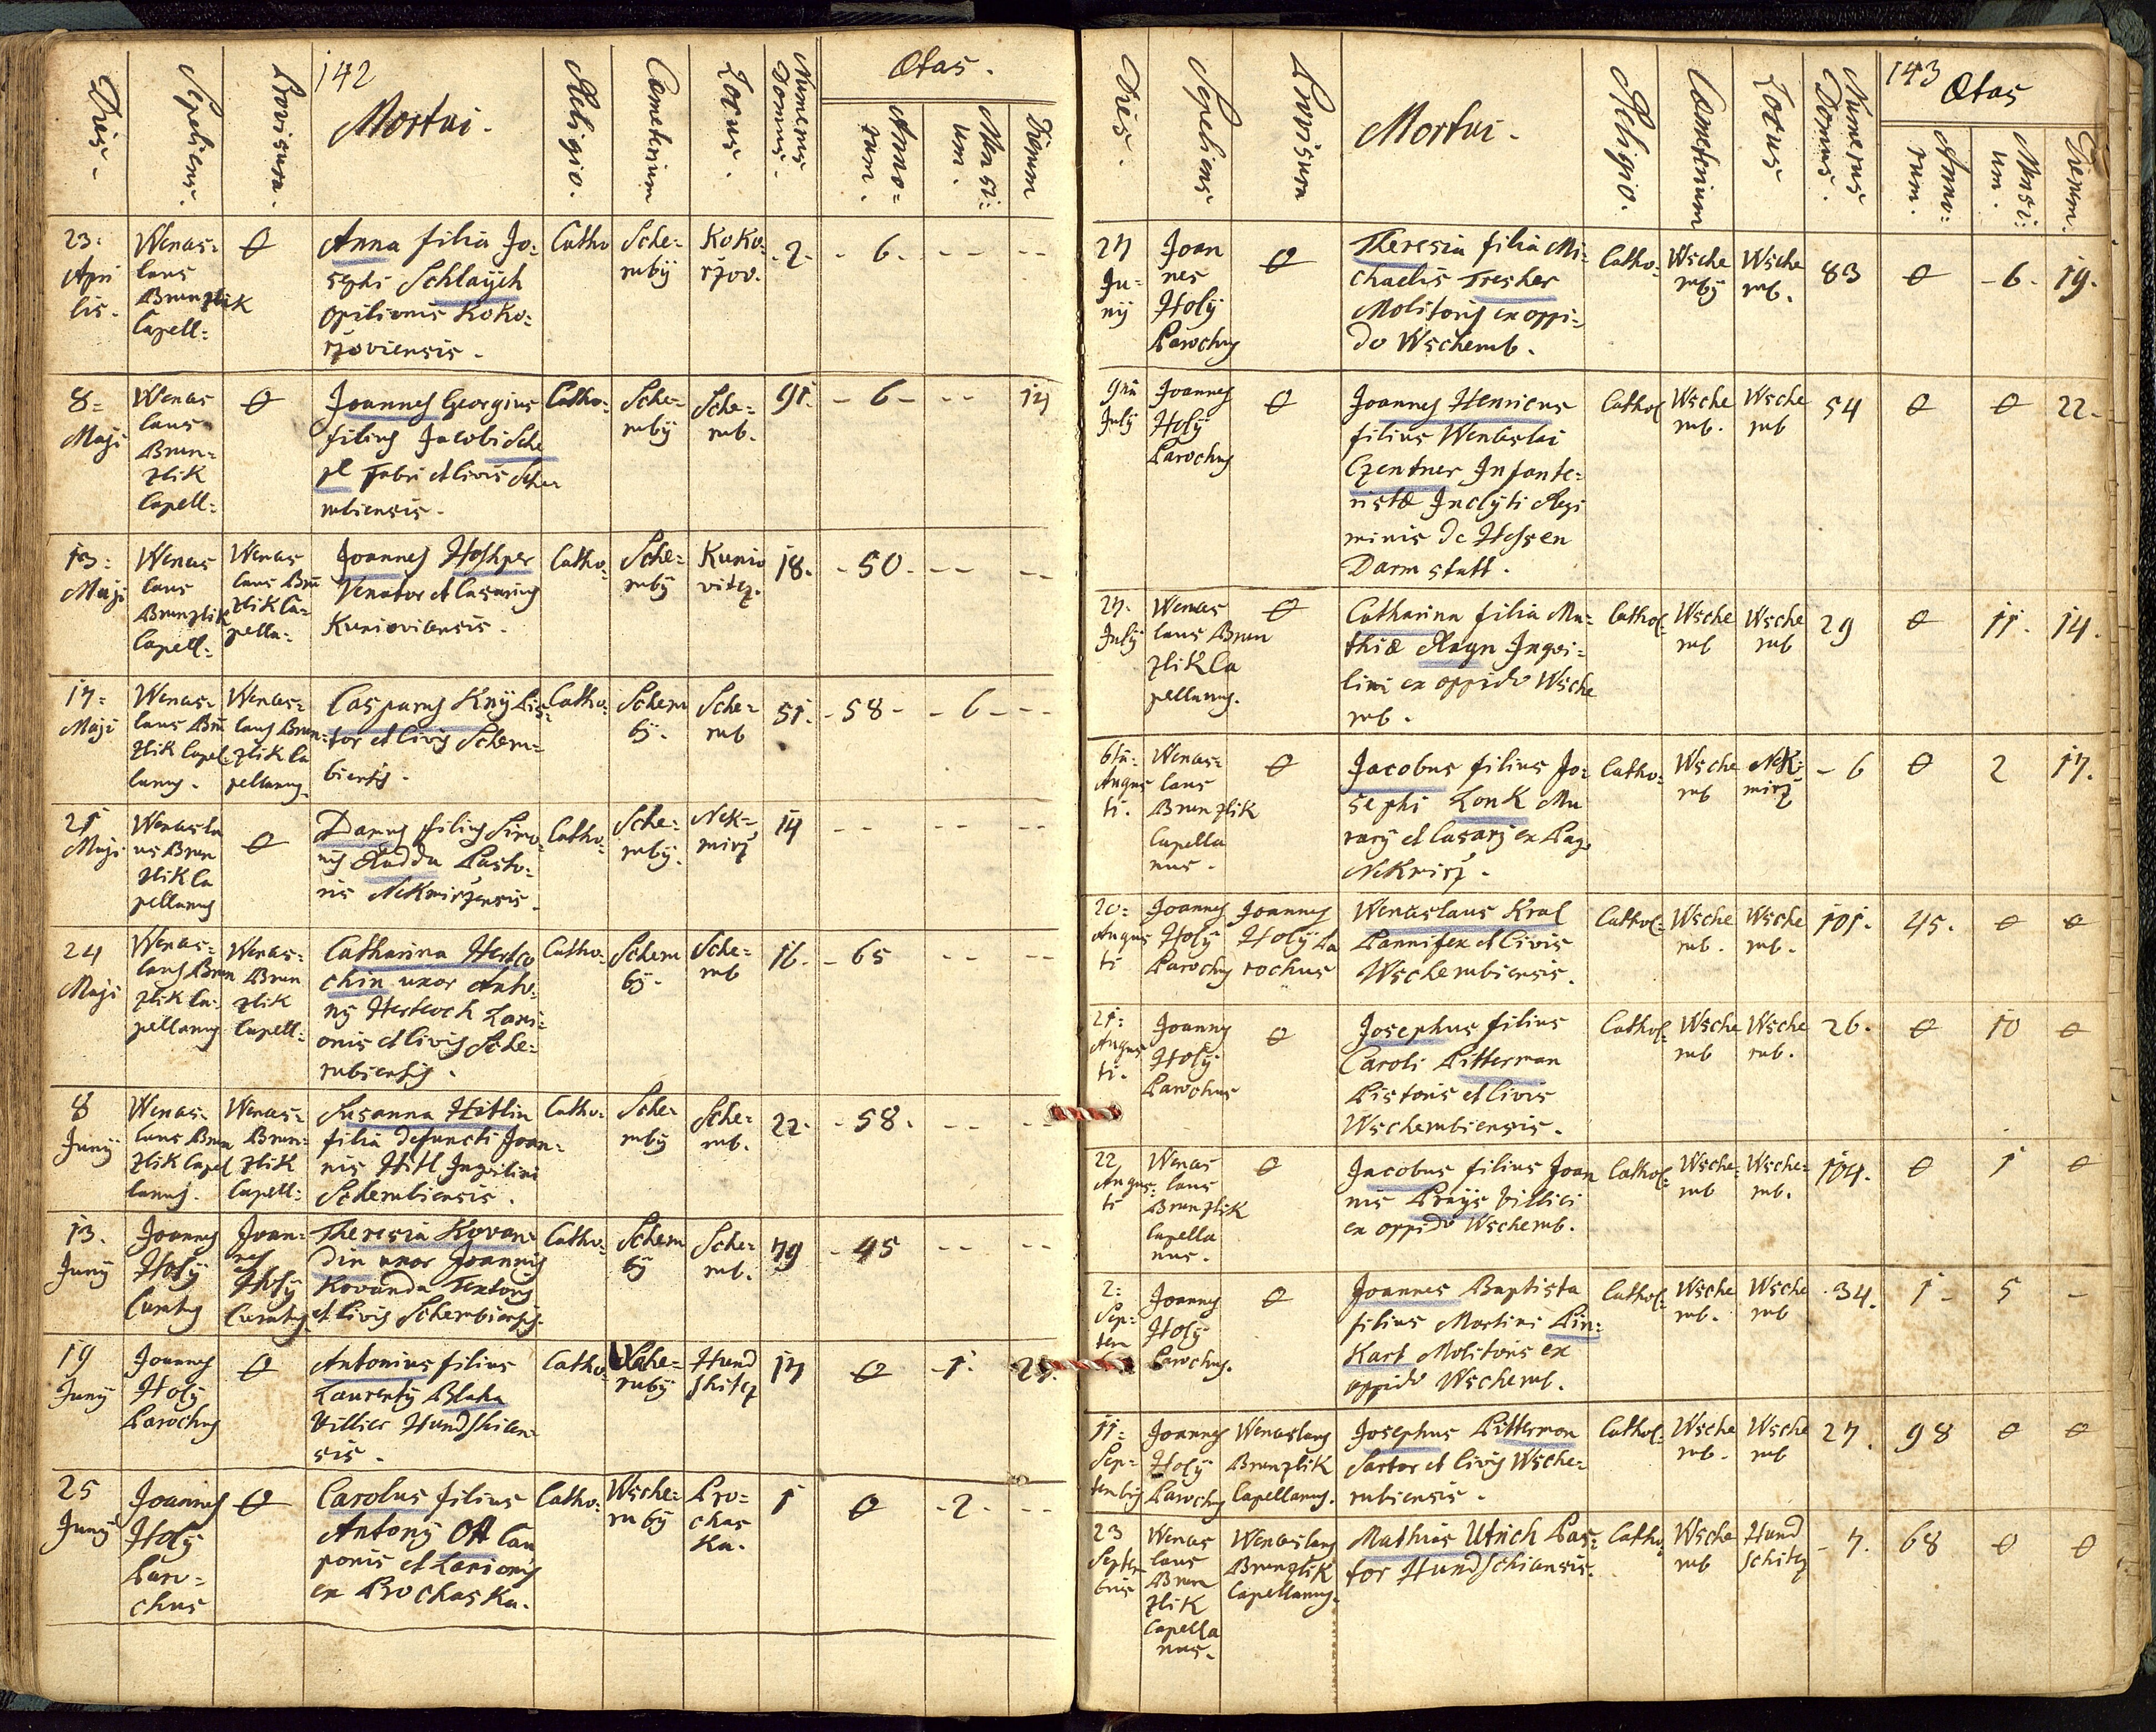 142
Dies.
Sepeliens.
Provisura.
Mortui.
Religio.
Cæmeterium
Locus.
Numerus Domus.
Ætas.
Anno=
rum.
Mensi:
um.
Dierum
23:
Apri
lis.
Wences=
laus
Brunzlik
Capell:
0
Anna filia Jo:
sephi Schlaych
opilionis Koko=
rzoviensis.
Catho
Sche=
ruby
Koko:
rzov.
2.
6.
8=
Maji
Wences
laus
Brun=
zlik
Capell:
0
Joannes Georgius
filius Jacobi Sche
pl Fabri et Civis Sche
rubiensis.
Catho:
Sche=
ruby
Sche=
rub.
91.
6
14
13:
Maji
Wences
laus
Brunzlik
Capell:
Wences
laus Brū
zlik Ca=
pella:
Joannes Hoshper
Venator et Casarius
Kunioviensis.
Catho:
Sche=
ruby
Kunio
vitz.
18.
50.
17=
Maji
Wences=
laus Brū
zlik Capel
lanus.
Wences=
laus Brun=
zlik Ca
pellanus.
Casparus Kny Pis=
tor et Civis Scheru=
biensis.
Catho:
Scheru
by.
Sche=
rub
51.
58
6
21
Maji
Wencesla
us Brun
zlik Ca
pellanus
0
Darius filius Simo
nis Rudda Pasto=
ris Nekmirzensis.
Catho:
Sche=
ruby.
Nek=
mirz
14
24
Maji
Wences=
laus Brun
zlik Ca=
pellanus
Wences=
Brun
zlik
Capell:
Catharina Hertco
chin uxor Anto=
ny Hertvoch Lani=
onis et Civis Sche=
rubiensis.
Catho:
Scheru
by.
Sche=
rub
16.
65
8
Juny
Wences=
laus Brun
zlik Capel
lanus.
Wences=
Brun=
zlik
Capell:
Susanna Hitlin
filia defuncti Joan=
nis Hitl Inquilini
Scherubiensis.
Catho:
Sche=
ruby
Sche=
rub.
22.
58.
13.
Juny
Joannes
Holy
Curatus
Joan=
nes
Holy
Curatus
Theresia Kovan=
din uxor Joannis
Kovanda Textoris
et Civis Scherubiensis.
Catho:
Scheru
by
Sche=
rub.
79
45
19
Juny
Joannes
Holy
Parochus
0
Antonius filius
Laurenty Blaha
Villici Hundshicen
sis.
Catho:
Wsche=
ruby
Hund
shitz
17
0
1.
21.
25
Juny
Joannes
Holy
Paro=
chus
0
Carolus filius
Antony Ott Cau
ponis et Lanionis
ex Prochaska.
Catho:
Wsche=
ruby
Pro=
chas
ka.
1
0
2.
143
Dies.
Sepeliens
Provisura
Mortui.
Religio.
Cæmeterium
Locus
Numerus Domus.
Ætas
Anno:
rum.
Mensi:
um.
Dierum.
27
Ju=
ny
Joan
nes
Holy
Parochus
0
Theresia filia Mi=
chaelis Trescher
Molitoris ex oppi=
do Wscherub.
Catho:
Wsche
ruby
Wsche
rub.
83
0
6.
19.
9nā
July
Joannes
Holy
Parochus
0
Joannes Henricus
filius Wenceslai
Czentner Infante=
ristæ Inclyti Regi
minis de Hessen
Darmstatt.
Cathol
Wsche
rub.
Wsche
rub
54
0
0
22.
27.
July
Wences
laus Brun
zlik Ca
pellanus.
0
Catharina filia Ma=
thiæ Ragn Inqui=
lini ex oppido Wsche
rub.
Cathol:
Wsche
rub
Wsche
rub
29
0
11.
14.
6tā
Augus
ti.
Wences=
laus
Brunzlik
Capella
nus.
0
Jacobus filius Jo=
sephi Lonk Mu
rary et Casary ex Pago
Nekmirz.
Catho:
Wsche
rub
Nek:
mirz
6
0
2
17.
20=
Augus
ti
Joannes
Holy
Parochus
Joannes
Holy Pa
rochus
Wenceslaus Kral
Pannifex et Civis
Wscherubiensis.
Cathol:
Wsche
rub.
Wsche
rub.
101.
45.
0
0
21=
Augus
ti.
Joannes
Holy
Parochus
0
Josephus filius
Caroli Pitterman
Pistoris et Civis
Wscherubiensis.
Cathol:
Wsche
rub
Wsche
rub.
26.
0
10
0
22
Augus=
ti
Wences
laus
Brunzlik
Capella
nus.
0
Jacobus filius Joan
nis Prays Villici
ex oppido Wscherub.
Cathol:
Wsche=
rub
Wsche=
rub.
104.
0
1
0
2=
Sep=
tem
Joannes
Holy
Parochus.
0
Joannes Baptista
filius Martini Pin=
kart Molitoris ex
oppido Wscherub.
Cathol:
Wsche
rub.
Wsche
rub
34.
1
5
11=
Sep=
tembris
Joannes
Holy
Parochus
Wenceslaus
Brunzlik
Capellanus.
Josephus Pitterman
Sartor et Civis Wsche=
rubiensis.
Cathol:
Wsche
rub.
Wsche
rub
27.
98
0
0
23
Septem
bris
Wences
laus
Brun
zlik
Capella
nus.
Wenceslaus
Brunzlik
Capellanus.
Mathias Ulrich Pas=
tor Hundschiensis.
Catho
Wsche
rub
Hund
schitz
7.
68
0
0